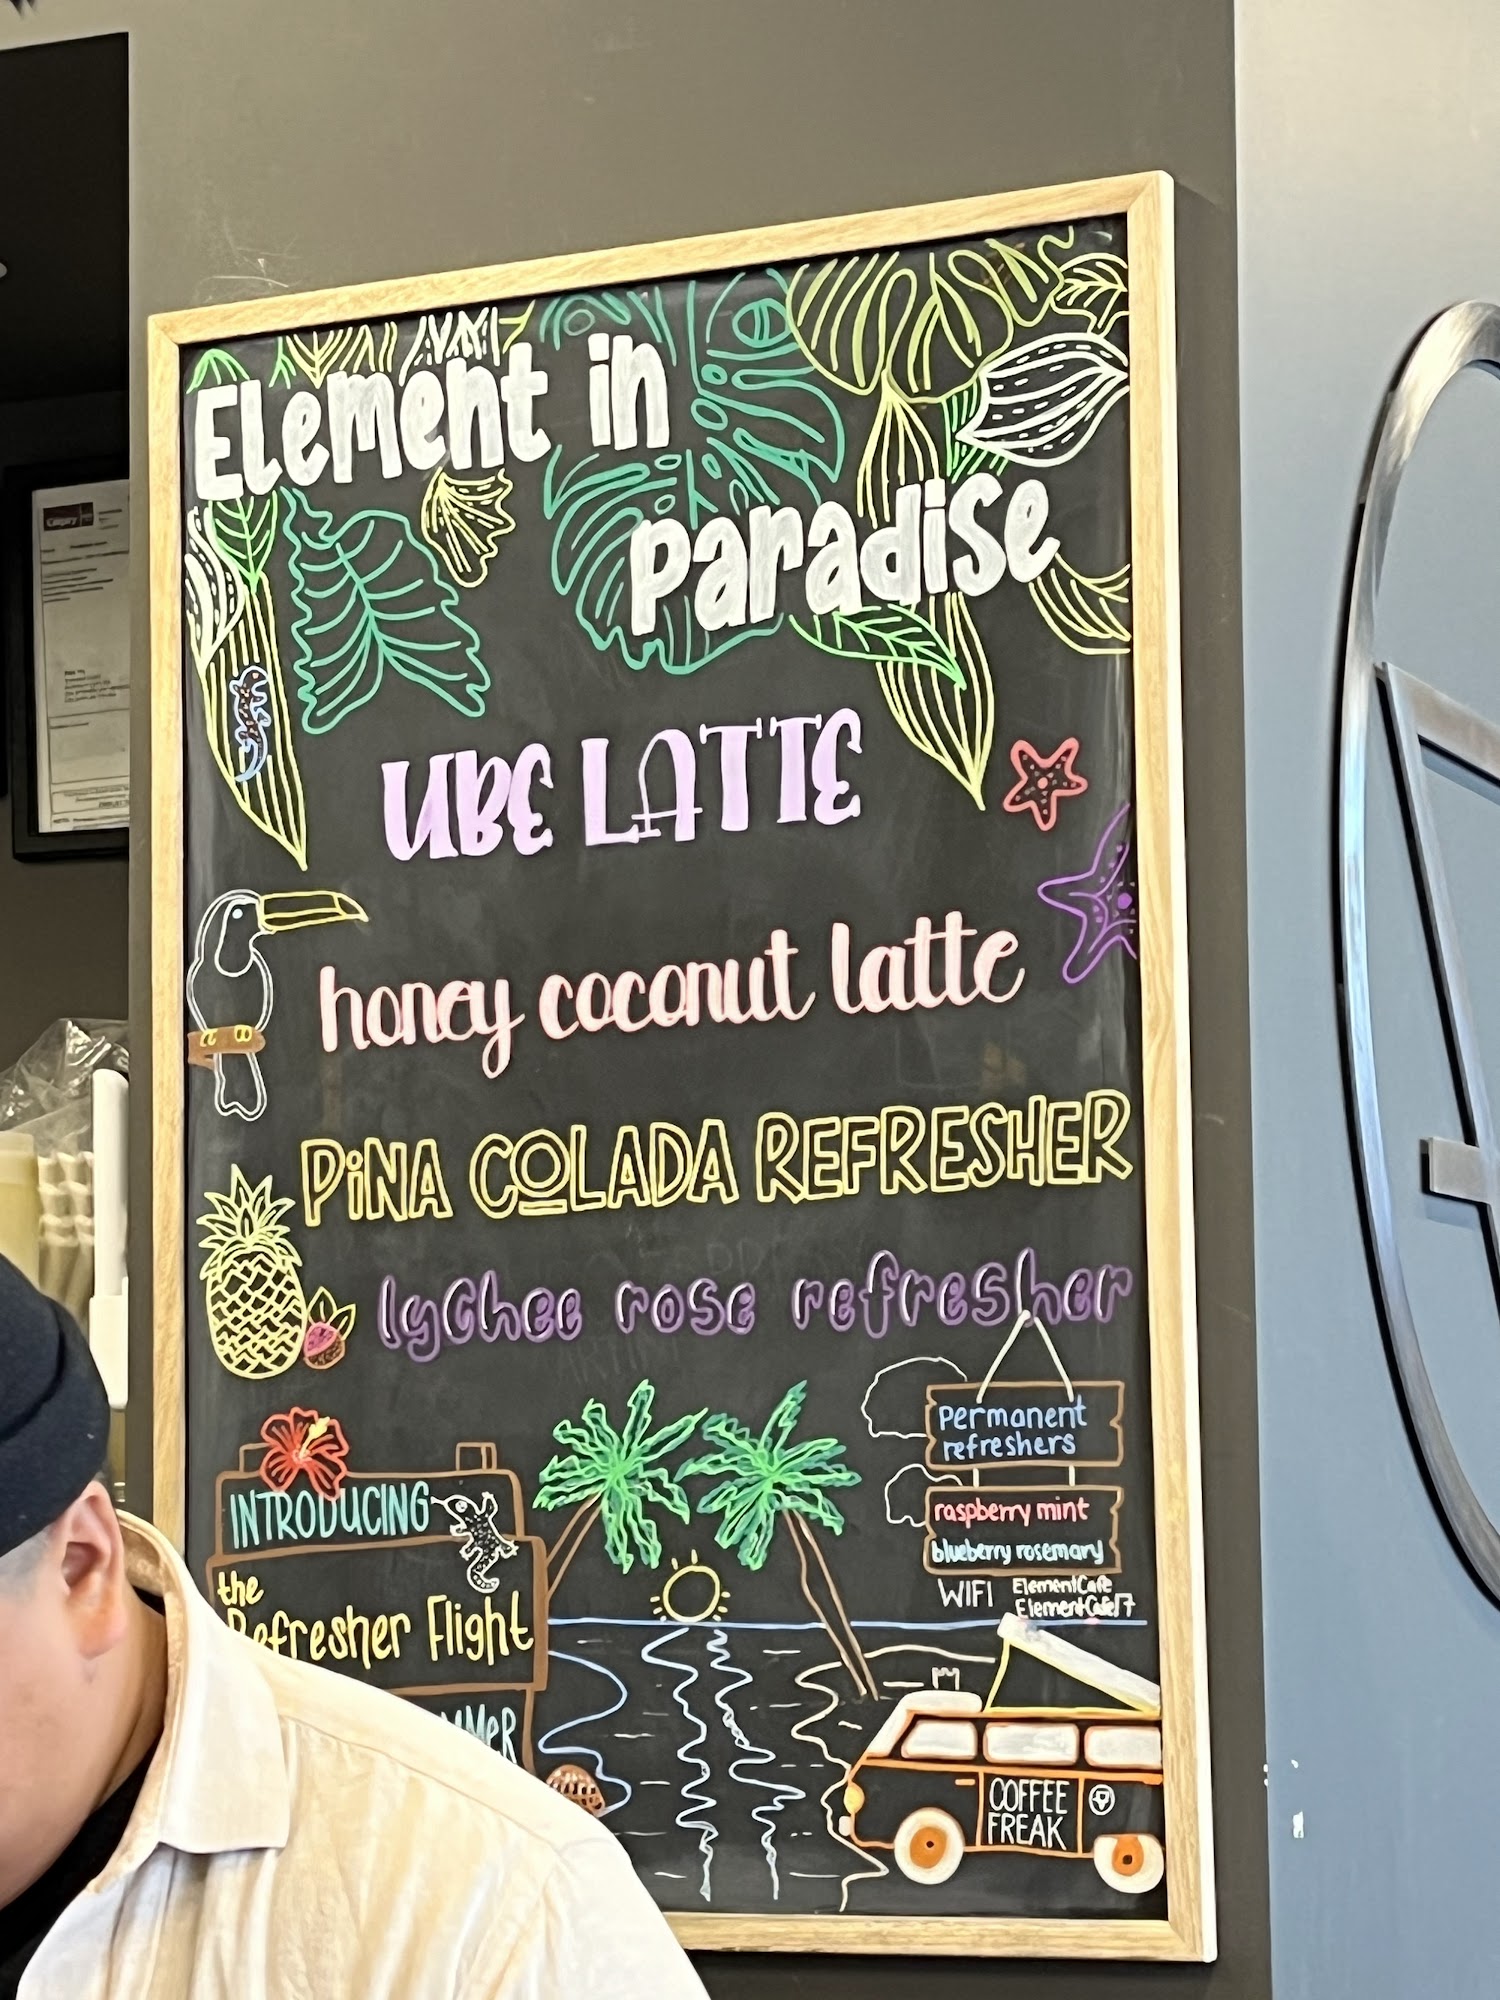 Element in
paradise
UBE LATTE
honey coconut latte
PiNA COLADA REFRESHER
lychee rose refresher
permanent
refreshers
raspberry mint
blueberry rosemary
WIFI ElementCafe
ElementCafe17
INTRODUCING
the
Refresher Flight
COFFEE
FREAK
Calgary